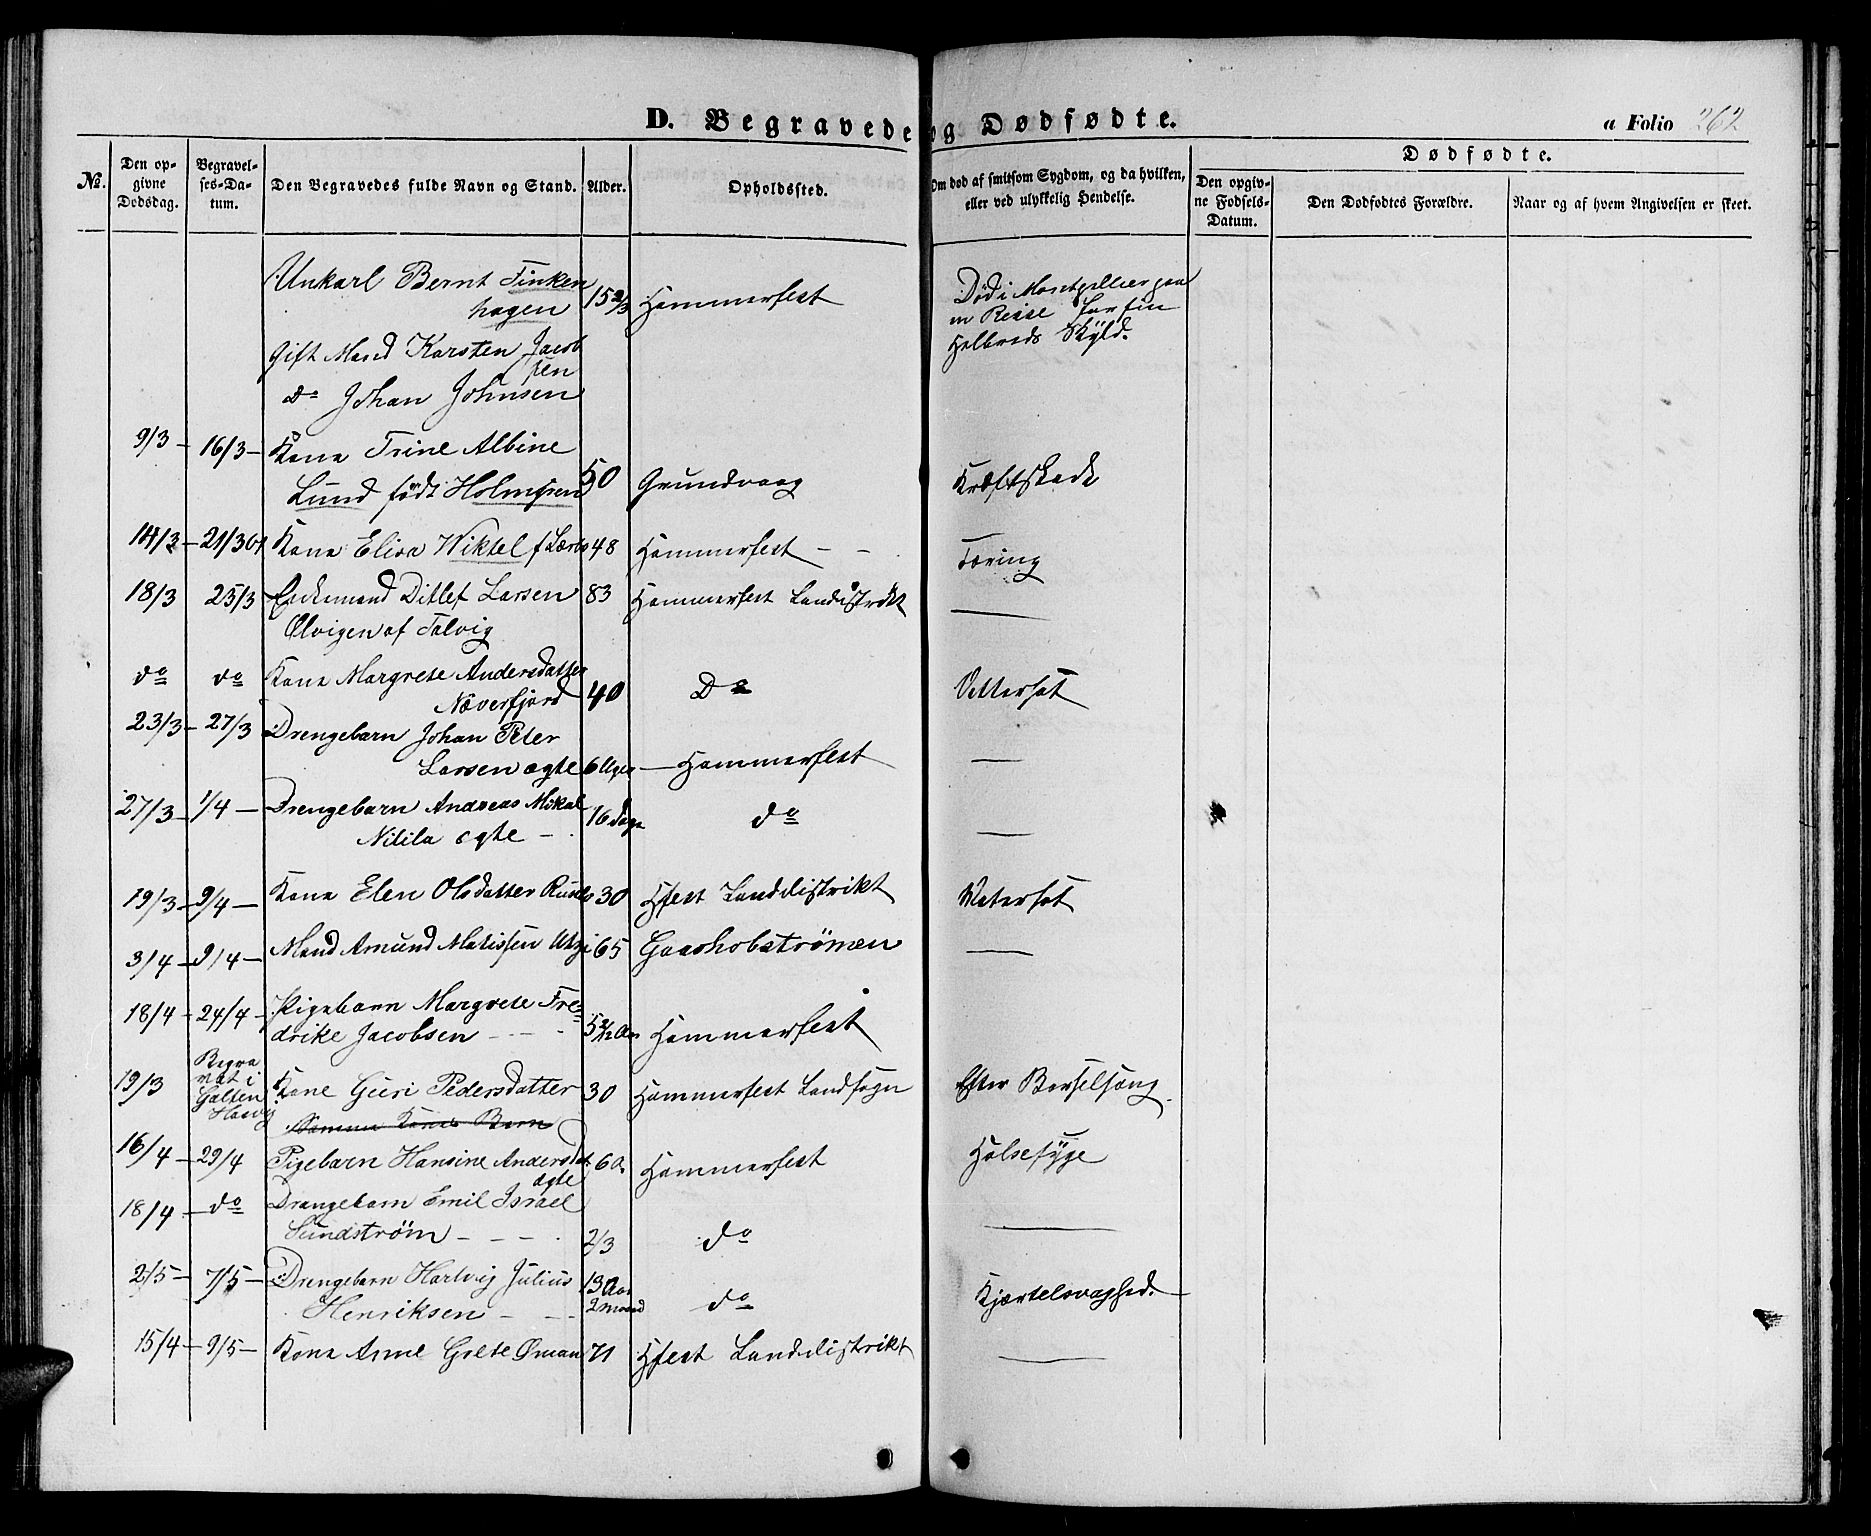 D. Begravede og Dødfødte.
a Folio 262
No.
Den opgivne Dødsdag.
Begravelses-Datum.
Den Begravedes fulde Navn og Stand.
Alder.
Opholdssted.
Om død af smitsom Sygdom, og da hvilken, eller ved ulykkelig Hendelse.
Dødfødte.
Den opgivne Fødsels-Datum.
Den Dødfødtes Forældre.
Naar og af hvem Angivelsen er skeet.
Unkarl Bernt Finken
hagen 15 2/3 Hammerfest Død i Montpellier paa
en Reise for sin
Helbreds Skyld.
Gift Mand Karsten Jacob
sen
do Johan Johnsen
9/3 – 16/3 – Kona Trine Albine
Lund født Holmgren 50 Grundvaag Kræftskade
14/3 – 21/3 Kona Elisa Wiktel f. 48 Hammerfest – – Tæring
18/3 25/3 Enkemand Ditlef Larsen 83 Hammerfest Landistrikt —
Ølvigen af Talvig
do do Kona Margrete Andersdatter
Næverfjord 40 Do Vattersot
23/3 – 27/3 Drengebarn Johan Peter
Larsen ægte 6 Uger – Hammerfest —
27/3 – 1/4 – Drengebarn Andreas Mikal
Nilila ægte – 16 dage do —
19/3 – 9/4 – Kona Elen Olsdatter 30 Hfest Landdistrikt Watersot
3/4 – 9/4 – Mand Amund Matissen 65 Gaashobstrømen —
18/4 – 24/4 – Pigebarn Margrete Fre-
drike Jacobsen – – – 5 Hammerfest
19/3 Begra
vet i
Galten
Hasvig Kone Guri Pedersdatter 30 Hammerfest Landsogn Efter Barselsæng
Samme Kones Barn
16/4 – 29/4 Pigebarn Hansine Andersdt. 6 a. Hammerfest Halsesyge
ægte
18/4 – do Drengebarn Emil Israel
Sundstrøm – – – 2/3 do —
2/5 – 7/5 – Drengebarn Hartvig Julius 13 Aar
Henriksen – – – 2 Maaned do Kjærtelsvaghed.
15/4 – 9/5 – Kona Anne Grete Öman 71 Hfest Landdistrikt —